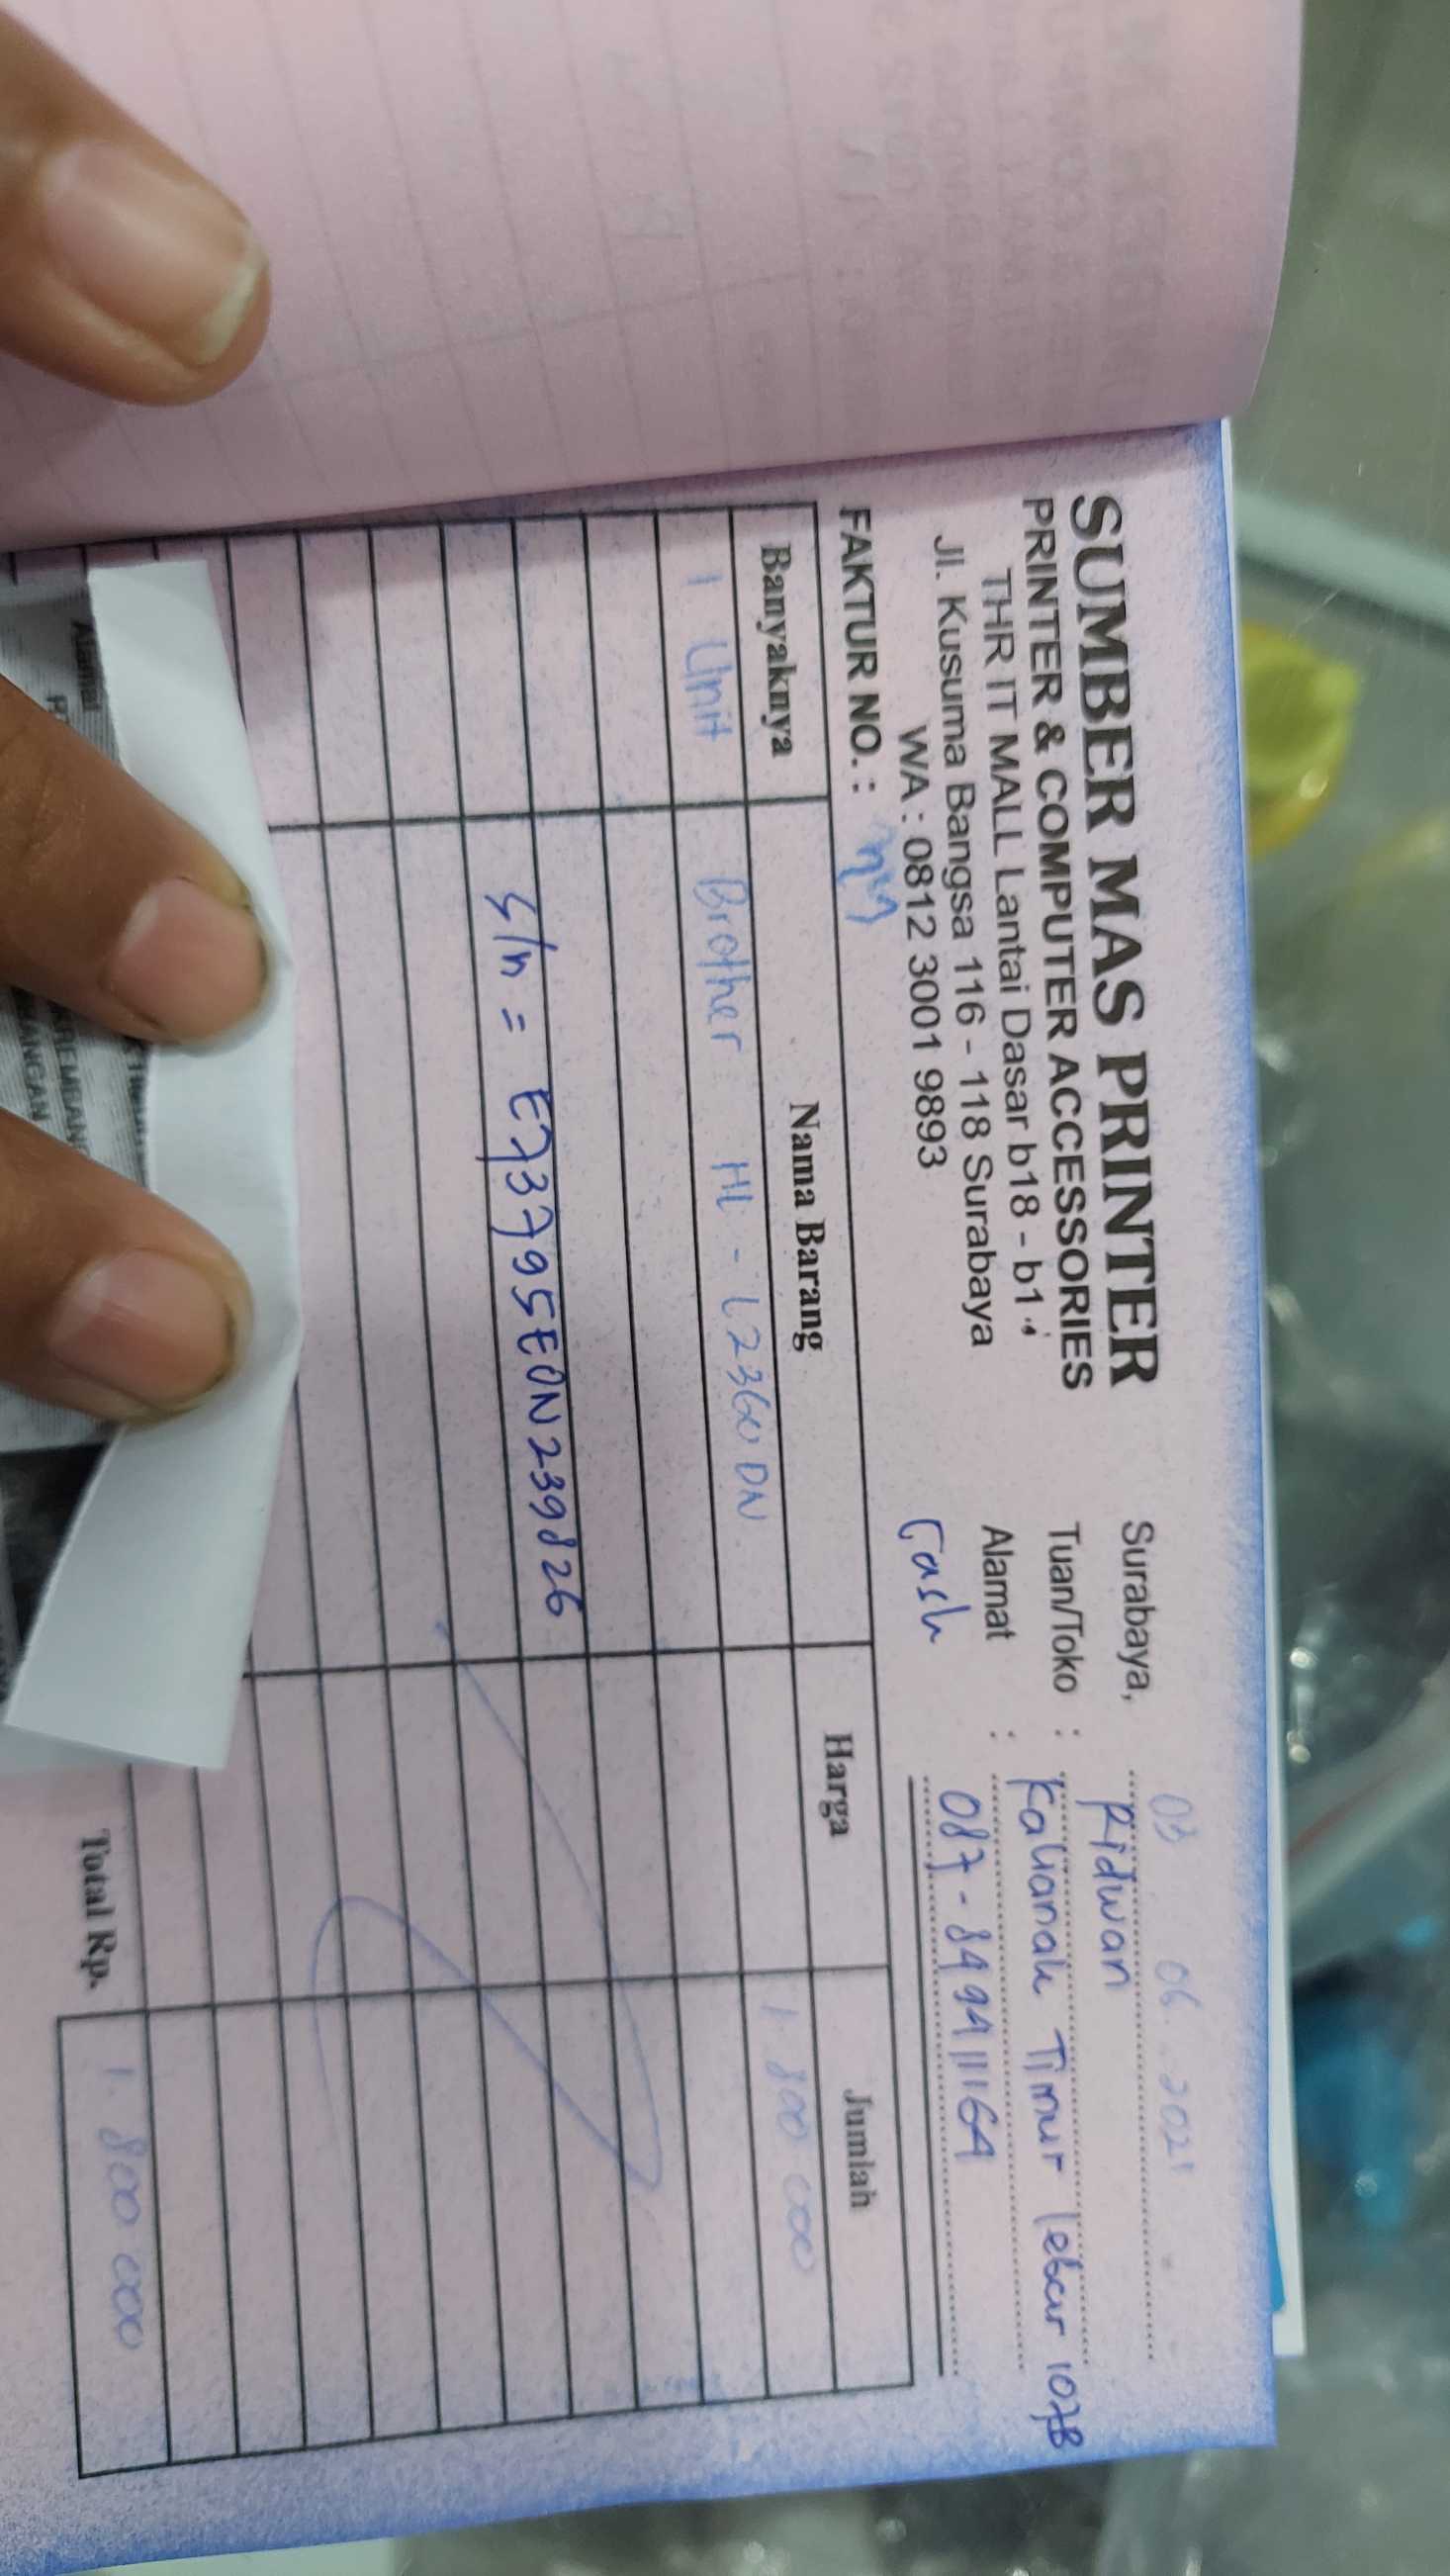 SUMBER MAS PRINTER
PRINTER & COMPUTER ACCESSORIES
THR IT MALL Lantai Dasar b18 - b1
Jl. Kusuma Bangsa 116 - 118 Surabaya
WA : 0812 3001 9893
Surabaya, 03 06 2021
Tuan/Toko : Ridwan
Alamat : Kalianak Timur lebar 107B
087-849411164
Cash
FAKTUR NO. :
Banyaknya Nama Barang Harga Jumlah
1 Unit Brother HL - L2360DN 1.800.000
s/n = E73795E0N239826
Total Rp. 1.800.000